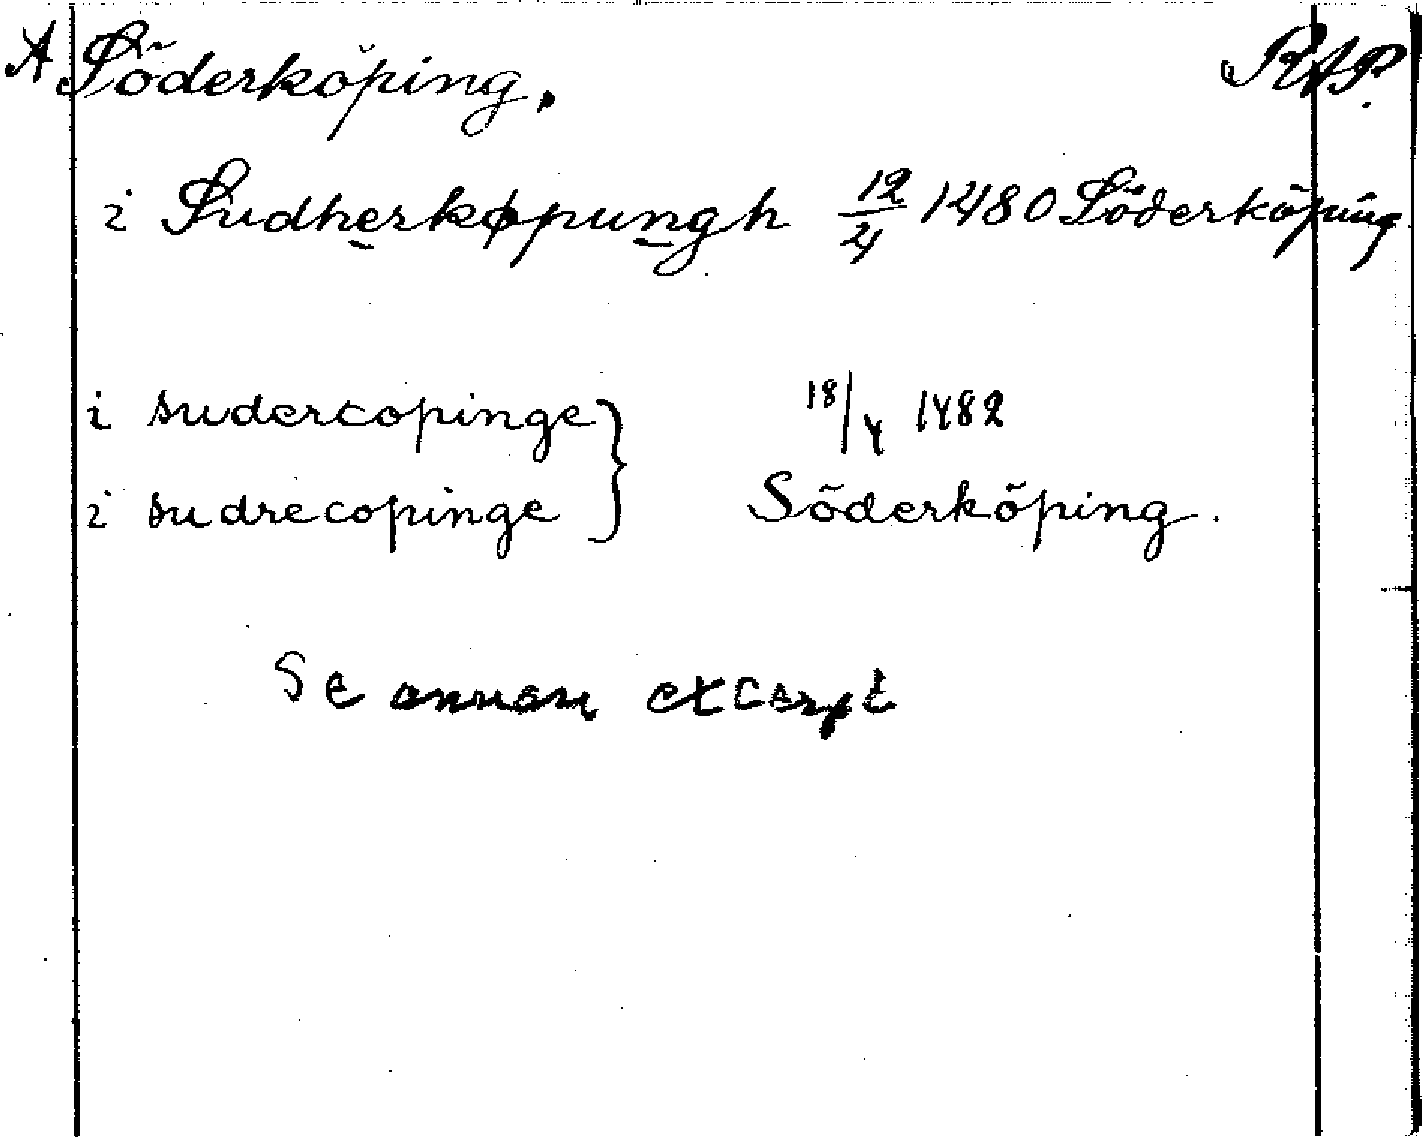 A Söderköping. RAP.
i Sudherkøpungh 12/4 1480 Söderköping
i sudercopinge } 18/4 1482
i sudrecopinge } Söderköping.
Se annan excerpt